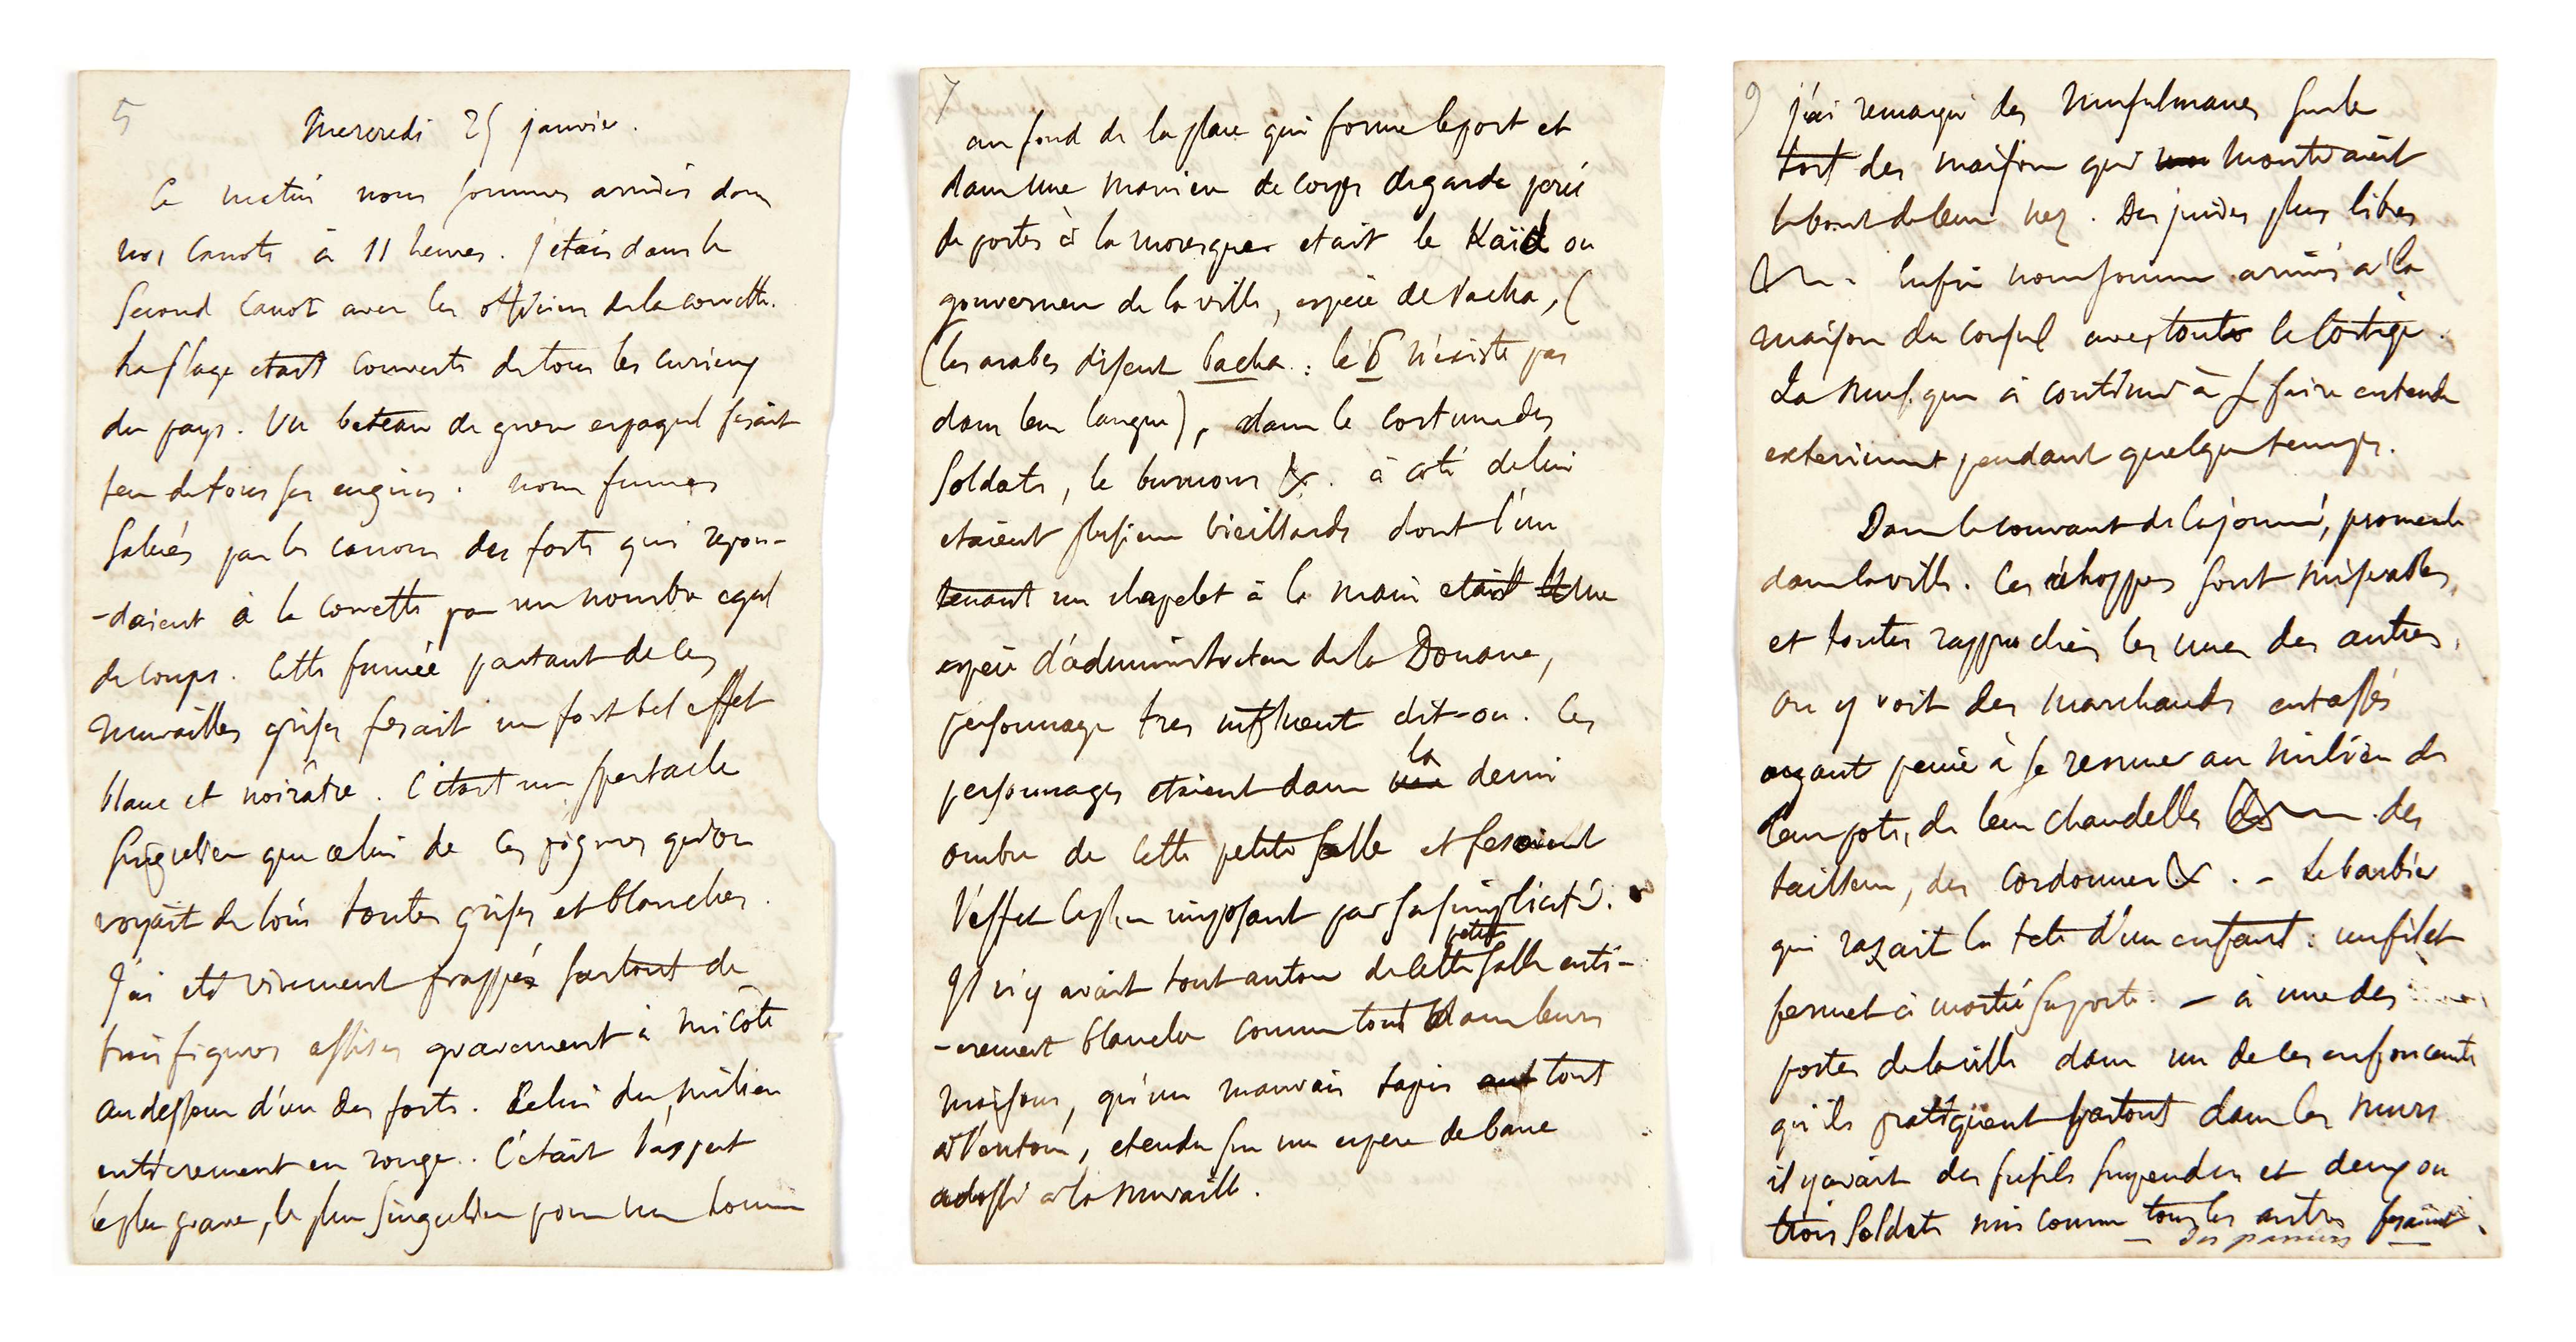 5
Mercredi 25 janvier.
Ce matin nous sommes arrivés dans
nos canots à 11 heures. j'etais dans le
second canot avec les officiers de la corvette.
La plage etait couverte de tous les curieux
du pays. Un bateau de guerre espagnol fesait
feu de tous ses engins. nous fumes
salués par les canons des forts qui repon-
-daient à la corvette par un nombre egal
de coups. Cette fumée partant de ces
murailles grises fesait un fort bel effet
blanc et noirâtre. C'etait un spectacle
singulier que celui de ces figures qu'on
voyait de loin toutes grises et blanches.
J'ai eté vivement frappé surtout de
trois figures assises gravement à mi côte
au dessous d'un des forts. Celui du milieu
entierement en rouge. C'était l'aspect
le plus grave, le plus singulier pour un homme
7
au fond de la place qui forme le port et
dans une maniere de corps de garde percé
de portes à la moresque etait le Kaïd ou
gouverneur de la ville, espèce de Pacha, (
(les arabes disent bacha : le P n'existe pas
dans leur langue), dans le costume des
soldats, le burnous &. à coté de lui
etaient plusieurs vieillards dont l'un
tenant un chapelet à la main etait une
espèce d'administrateur de la Douane,
personnage tres influent dit-on. Ces
personnages etaient dans la demi
ombre de cette petite salle et fesaient
l'effet le plus imposant par sa simplicité.
Il n'y avait tout autour de cette petite salle enti-
-erement blanche comme tout dans leurs
maisons, qu'un mauvais tapis tout
à l'entour, etendu sur une espece de banc
adossé à la muraille.
9
j'ai remarqué des Musulmanes sur le
toit des maisons qui montraient
le bout de leur nez. Des juives plus libres
&. Enfin nous sommes arrivés à la
maison du consul avec tout le cortége.
La musique a continué à se faire entendre
exterieurement pendant quelque temps.
Dans le courant de la journée, promenade
dans la ville. Ces échoppes sont miserables,
et toutes rapprochées les unes des autres.
On y voit des marchands entassés
ayant peine à se remuer au milieu de
leurs pots, de leurs chandelles & des
tailleurs, des cordonniers &. - Le barbier
qui razait la tete d'un enfant : un filet
fermet à moitié sa porte. - à une des
portes de la ville dans un de ces enfoncements
qu'ils pratiquent partout dans les murs
il y avait des fusils suspendus et deux ou
trois soldats mis comme tous les autres fesaient